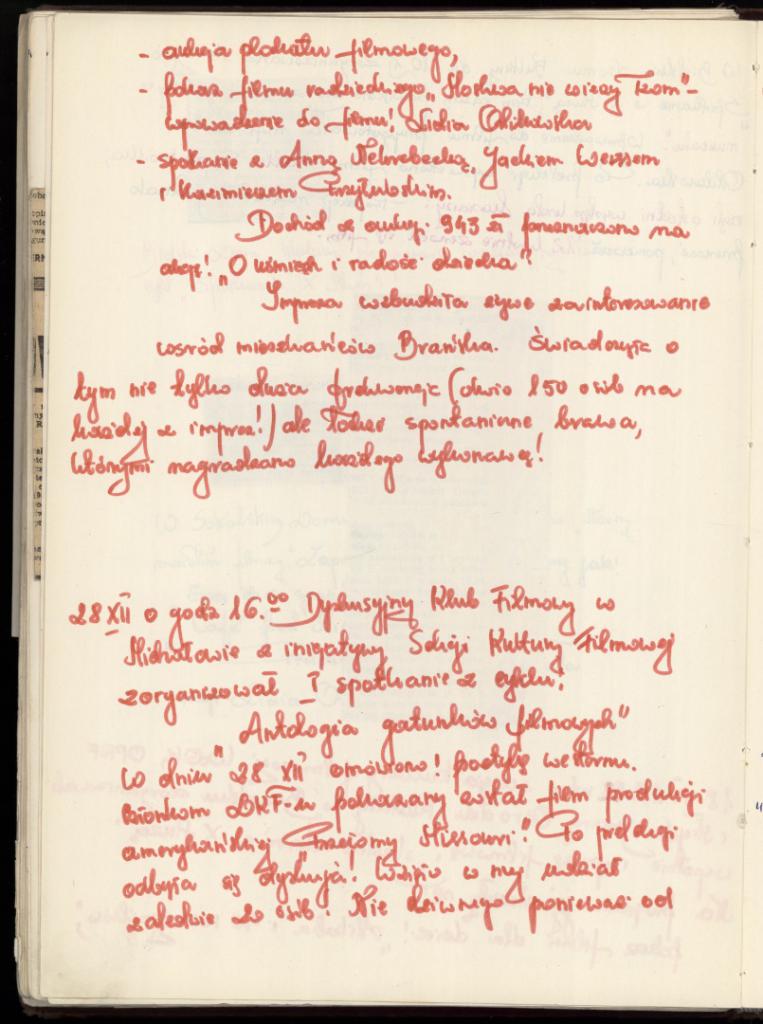 - aukcja plakatu filmowego,
- pokaz filmu radzieckiego „Moskwa nie wierzy łzom"-
wprowadzenie do filmu!
- spotkanie z Anną Nehrebecką, Jackiem Weissem
i Kazimierzem
Dochód z aukcji 943 zł przeznaczono na
akcję! „O uśmiech i radość dziecka"!
Impreza wzbudziła żywe zainteresowanie
wśród mieszkańców Brańska. Świadczyła o
tym nie tylko duża frekwencja (około 150 osób na
każdej z imprez!) ale także spontaniczne brawa,
którymi nagradzano każdego wykonawcę!
28 XII o godz 16.00 Dyskusyjny Klub Filmowy w
Michałowie z inicjatywy Sekcji Kultury Filmowej
zorganizował I spotkanie z cyklu:
Antologia gatunków filmowych"
W dniu 28 XII omówiono! poetykę westernu.
Członkom DKF-u pokazany został film produkcji
amerykańskiej „Przełomy Missouri." Po prelekcji
odbyła się dyskusja! Wzięło w niej udział
zaledwie 20 osób! Nic dziwnego ponieważ od